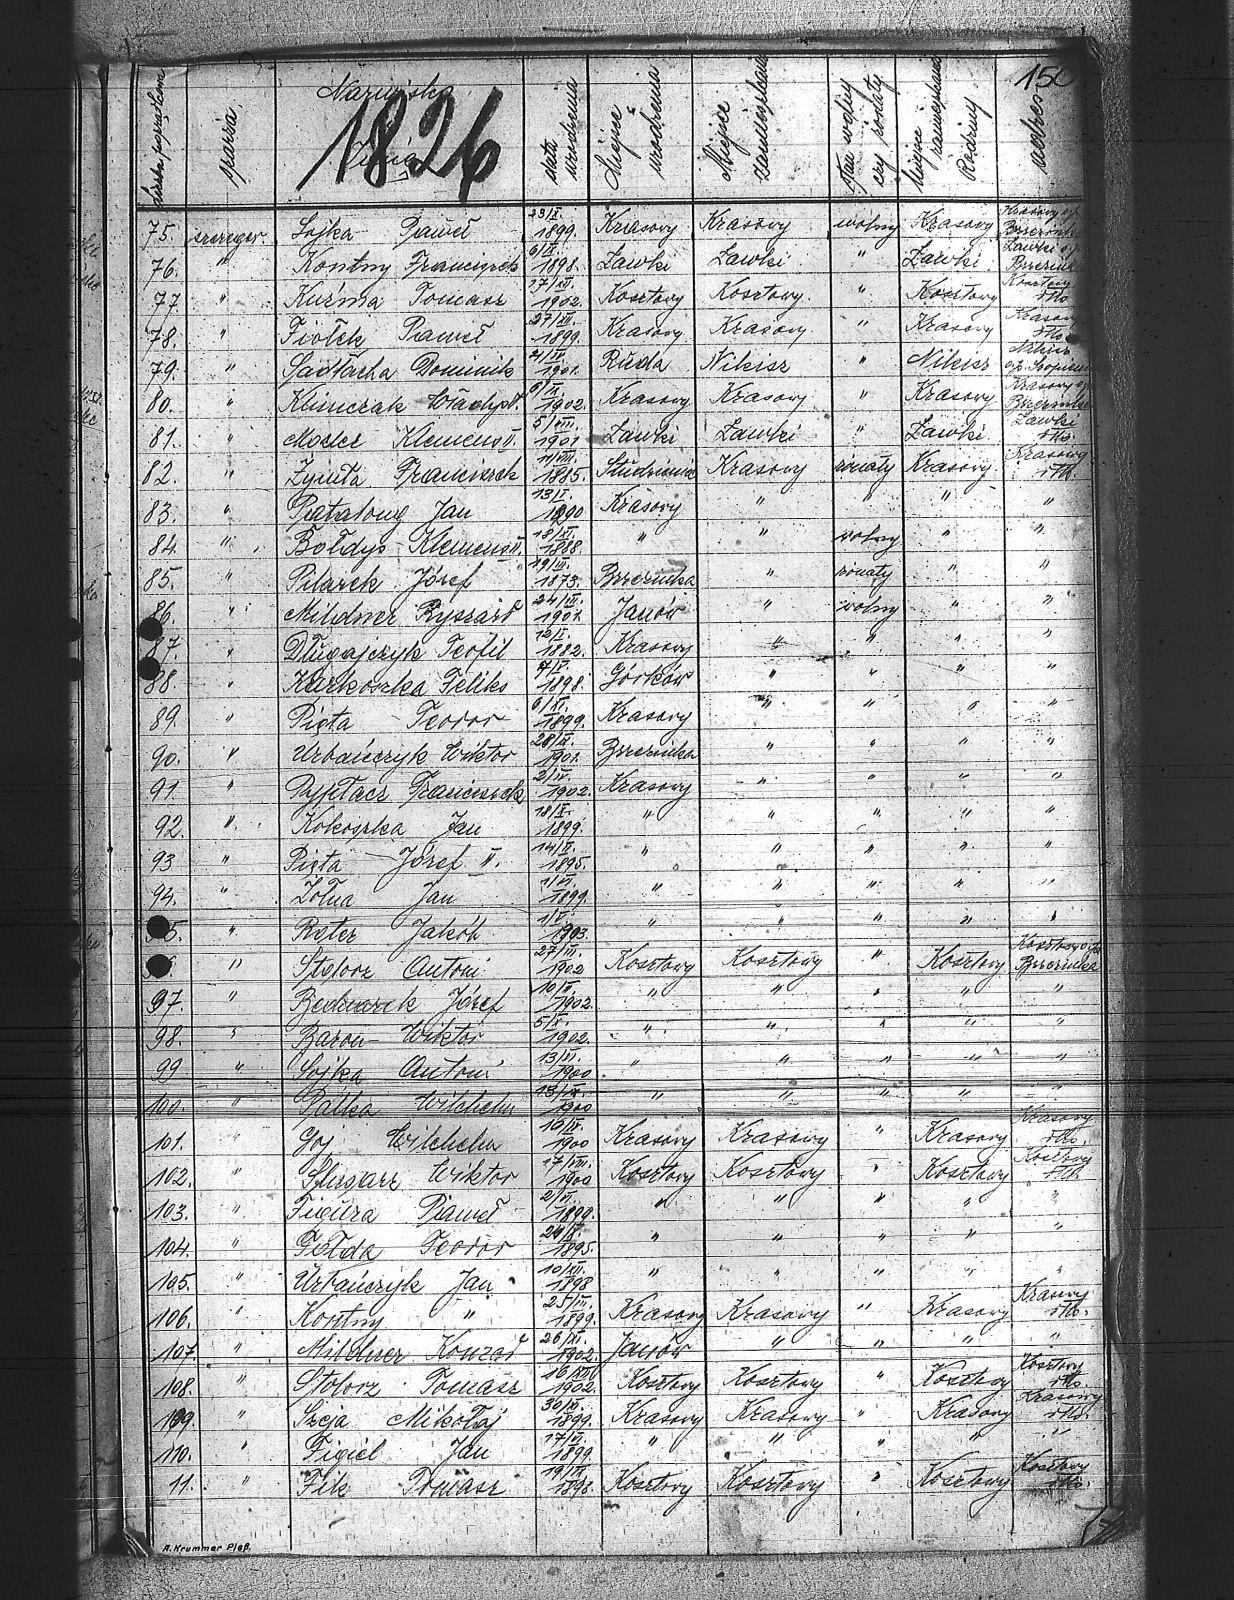 150
liczba porządkowa szarża Nazwisko Imię data urodzenia Miejsce urodzenia Miejsce zamieszkania Stan wolny czy żonaty Miejsce zamieszkania Rodziny adres
1826
75. szereger. Sojka Paweł 23/X. 1899. Krasowy Krasowy wolny Krasowy Krasowy
76. " Kontny Franciszek 1898. Ławki Ławki " Ławki Ławki Brzezinka
77 " Kuźma Tomasz 27/XII. 1902. Kosztowy Kosztowy. " Kosztowy Kosztowy
78. " Fiołek Paweł 27/XII. 1899. Krasowy Krasowy " Krasowy Krasowy
79. " Dominik 1901. Ruda Nikisz " Nikisz Nikisz
80. " Klimczak 1902. Krasowy Krasowy " Krasowy Krasowy
81. " Klemens II. 5/VIII. 1901 Ławki Ławki " Ławki Ławki
82. " Żymła Franciszek 1885. Krasowy żonaty Krasowy. Krasowy
83. " Jan 1890 Krasowy " " " "
84. " Bołdys Klemens II. 1888. " " wolny " "
85. " Pilarek Józef 19/III. 1873. Brzezinka " żonaty " "
86. " Mildner Ryszard 24/III. 1901. Janów " wolny " "
87. " Długajczyk Teofil 12/I. 1882. Krasowy " " " "
88. " Kurkoszka Feliks 1898. Górków " " " "
89. " Pięta Teodor 6/XI. 1899. Krasowy " " " "
90. " Urbańczyk Wiktor 1901. Brzezinka " " " "
91. " Franciszek 2/IV. 1902. Krasowy " " " "
92. " Kokoszka Jan 18/X. 1899. " " " " "
93 " Pięta Józef II. 14/II. 1895. " " " " "
94. " Żołna Jan 1/VI. 1899. " " " " "
95. " Reter Jakób 1/V. 1903. " " " "
" Stolorz Antoni 27/III. 1902 Kosztowy Kosztowy " Kosztowy Brzezinka
97. " Bednarek Józef 10/II. 1902. " " " " "
98. " Baron Wiktor 5/X. 1902. " " " " "
99 " Sojka Antoni 13/VI. 1900 " " " " "
100. " Palka Wilhelm 1900 " " " " "
101. " Goj Wilhelm 10/IV. 1900 Krasowy Krasowy " Krasowy Krasowy
102. " Ślusarz Wiktor 17/VIII. 1900 Kosztowy Kosztowy " Kosztowy Kosztowy
103. " Figura Paweł 2/VI. 1899. " " " " "
104. " Fełda Teodor 1895. " " " " "
105. " Urbańczyk Jan 10/XII. 1898 " " " " "
106. " Kontny " 25/III. 1899. Krasowy Krasowy " Krasowy Krasowy
107. " Mildner Konrad 26/XI. 1902. Janów " " " "
108. " Stolorz Tomasz 16/XII 1902. Kosztowy Kosztowy " Kosztowy Kosztowy
109. " Szeja Mikołaj 1899. Krasowy Krasowy " Krasowy Krasowy
110. " Figiel Jan 17/VI. 1899. " " " " "
11. " Fik Tomasz 19/IX 1898. Kosztowy Kosztowy " Kosztowy Kosztowy
A. Krummer Pleß.